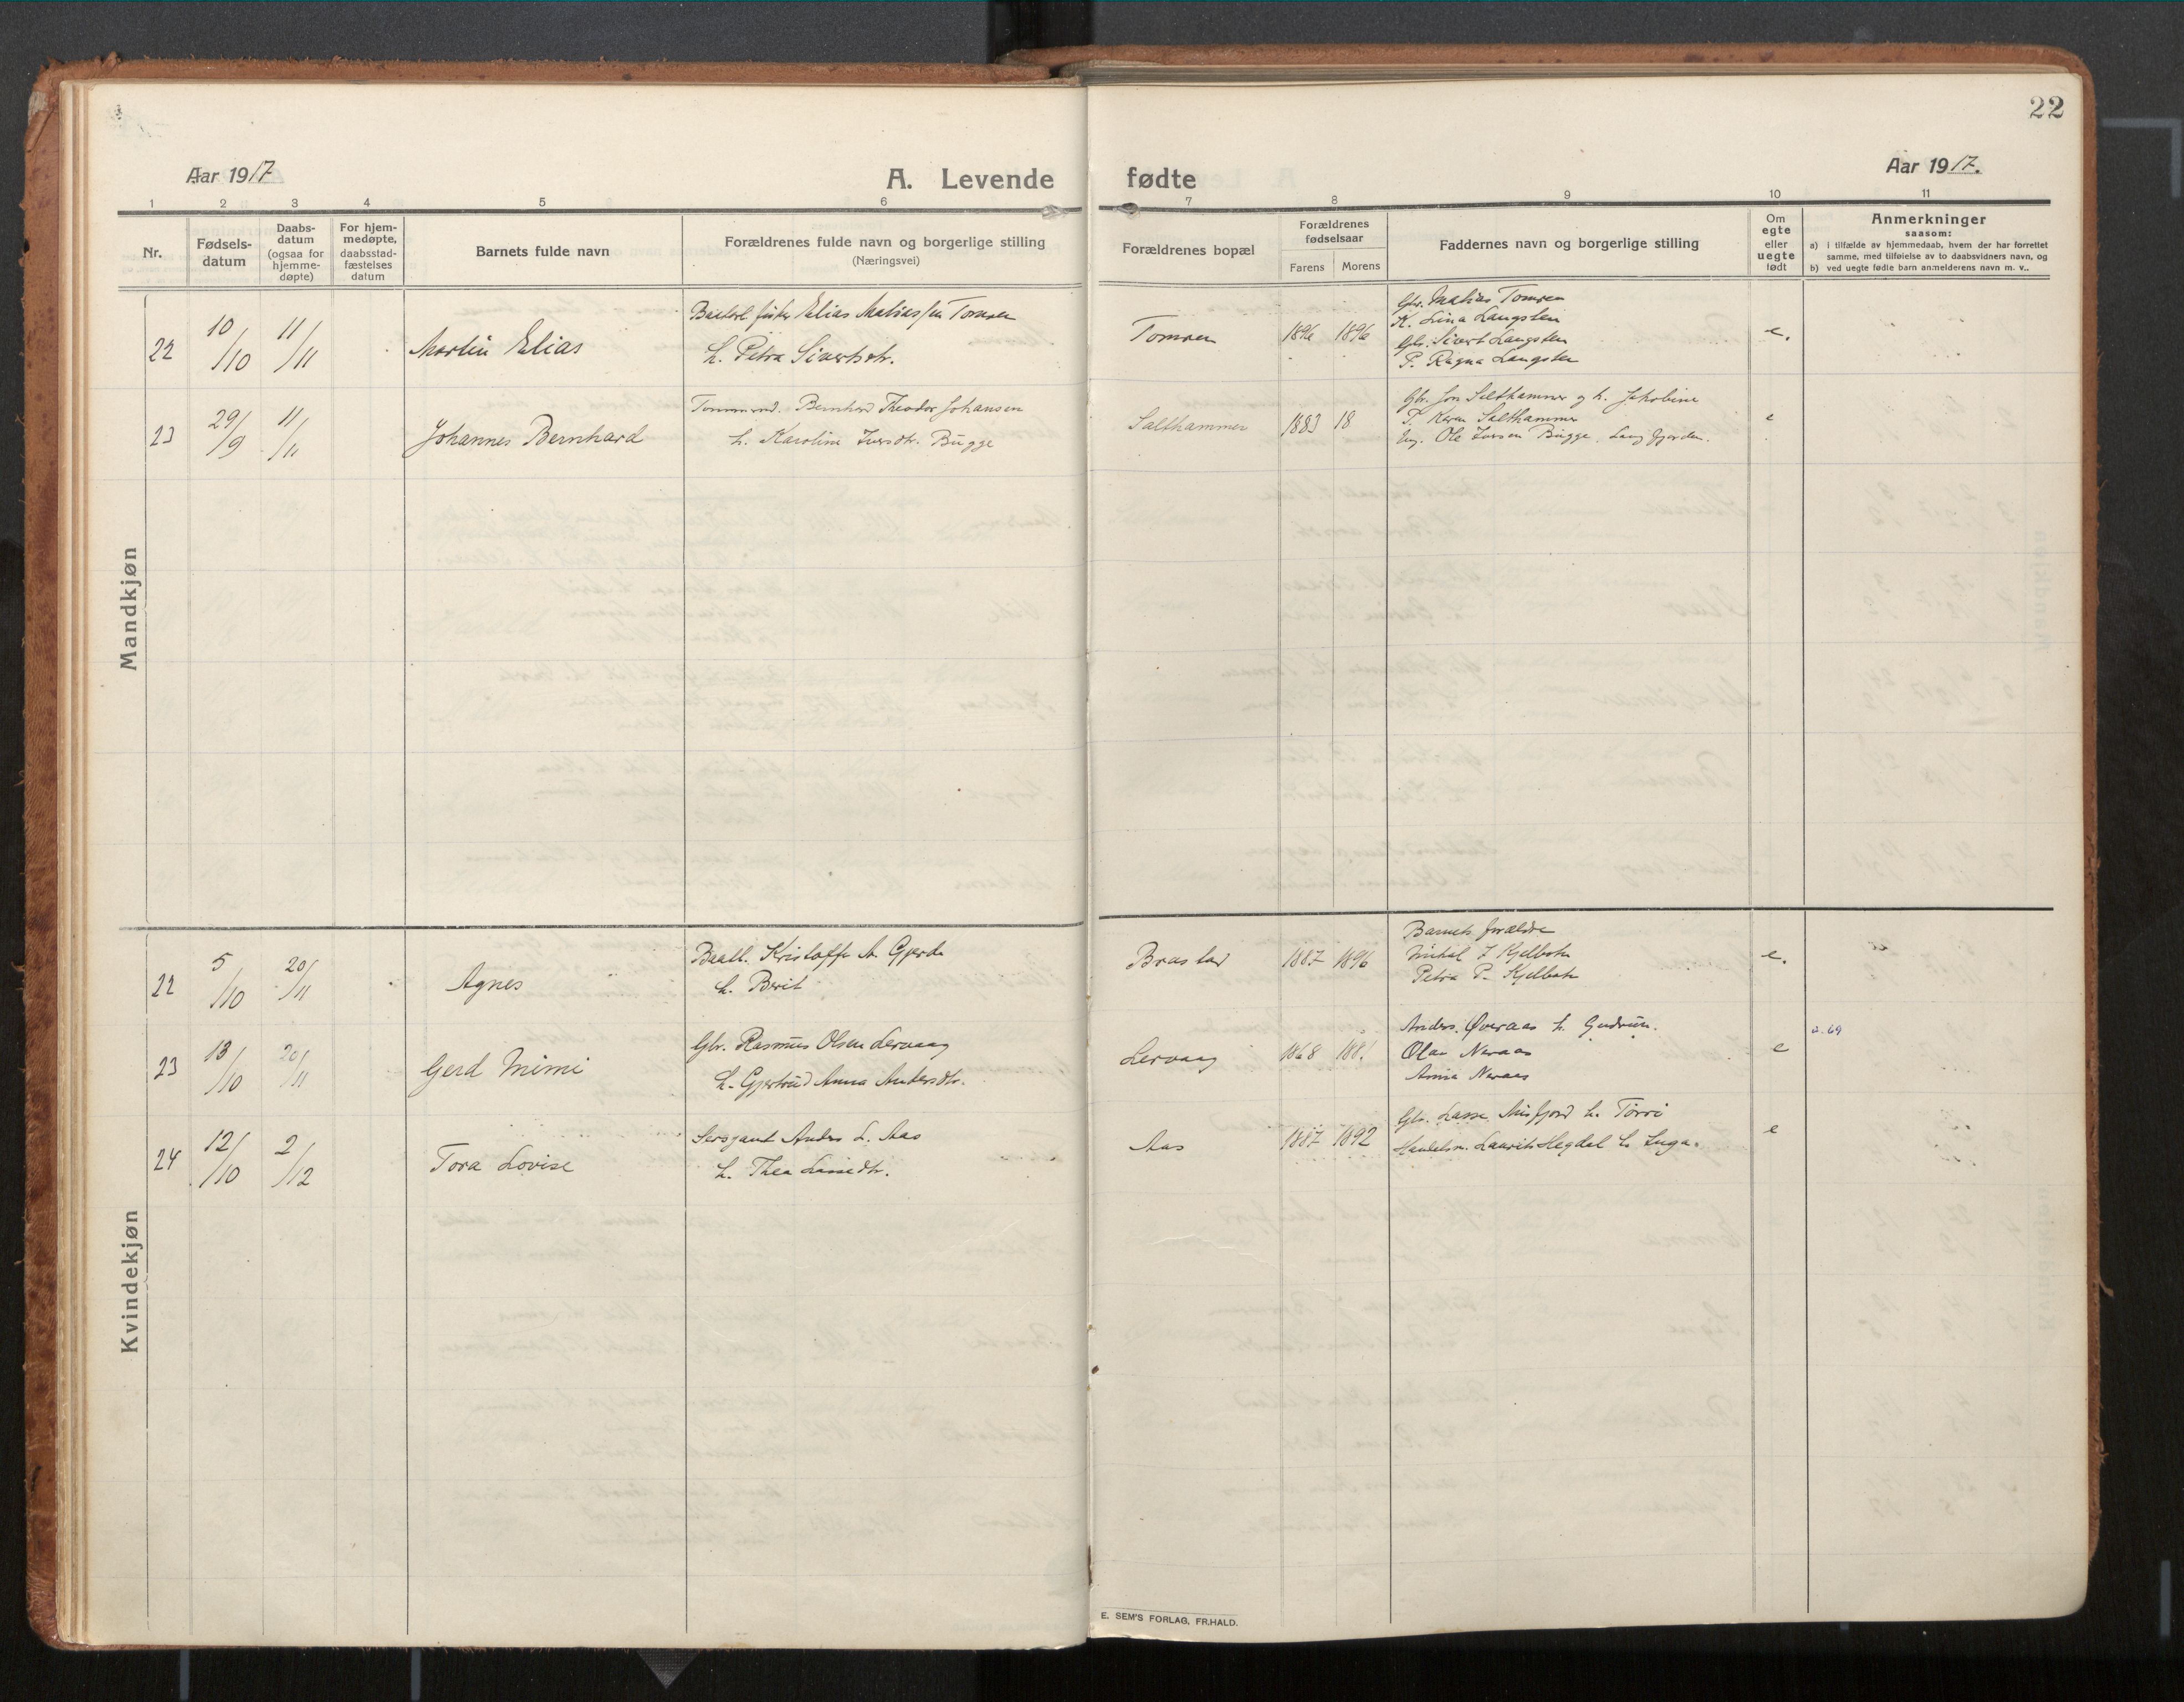 22
Aar 1917
A. Levende fødte
Aar 1917.
1 2 3 4 5 6 7 8 9 10 11
Nr.
Fødsels-
datum
Daabs-
datum
(ogsaa for
hjemme-
døpte)
For hjem-
medøpte,
daabsstad-
fæstelses
datum
Barnets fulde navn
Forældrenes fulde navn og borgerlige stilling
(Næringsvei)
Forældrenes bopæl
Forældrenes
fødselsaar
Farens Morens
Faddernes navn og borgerlige stilling
Om
egte
eller
uegte
født
Anmerkninger
saasom:
a) i tilfælde av hjemmedaab, hvem der har forrettet
samme, med tilføielse av to daabsvidners navn, og
b) ved uegte fødte barn anmelderens navn m. v..
Mandkjøn
22 10/10 11/11 Martin Elias
fisker Elias Matiassen Tomren
h. Petra Sivertsdtr.
Tomren 1896 1896
Gbr. Matias Tomren
K. Lina Langsten
Gbr. Sivert Langsten
P. Ragna Langsten
e.
23 29/9 11/11 Johannes Bernhard
Tømmermd. Bernhard Theodor Johansen
h. Karoline Iversdtr. Bugge
Salthammer 1883 18
Gbr. Jon Salthammer og h. Jakobine
P. Karen Salthammer
Ung. Ole Iversen Bugge, Langfjorden.
e
Kvindekjøn
22 5/10 20/11 Agnes
Baatb. Kristoffer A. Gjerde
h. Berit
Brastad 1887 1896
Barnets forældre
Mikal J Kjelbotn
Petra P. Kjelbotn
e.
23 13/10 20/11 Gerd Mimi
Gbr. Rasmus Olsen Lervaag
h. Gjertrud Anna Andersdtr.
Lervaag 1868 1881
Anders Øveraas h. Gudrun.
Olav Neraas
Anna Neraas
e
24 12/10 2/12 Tora Lovise
Sersjant Anders L. Aas
h. Thea Lassedtr.
Aas 1887 1892
Gbr. Lasse Misfjord h. Torri
Handelsm. Laurits Hegdal h. Inga.
e
E. SEM'S FORLAG, FR.HALD.